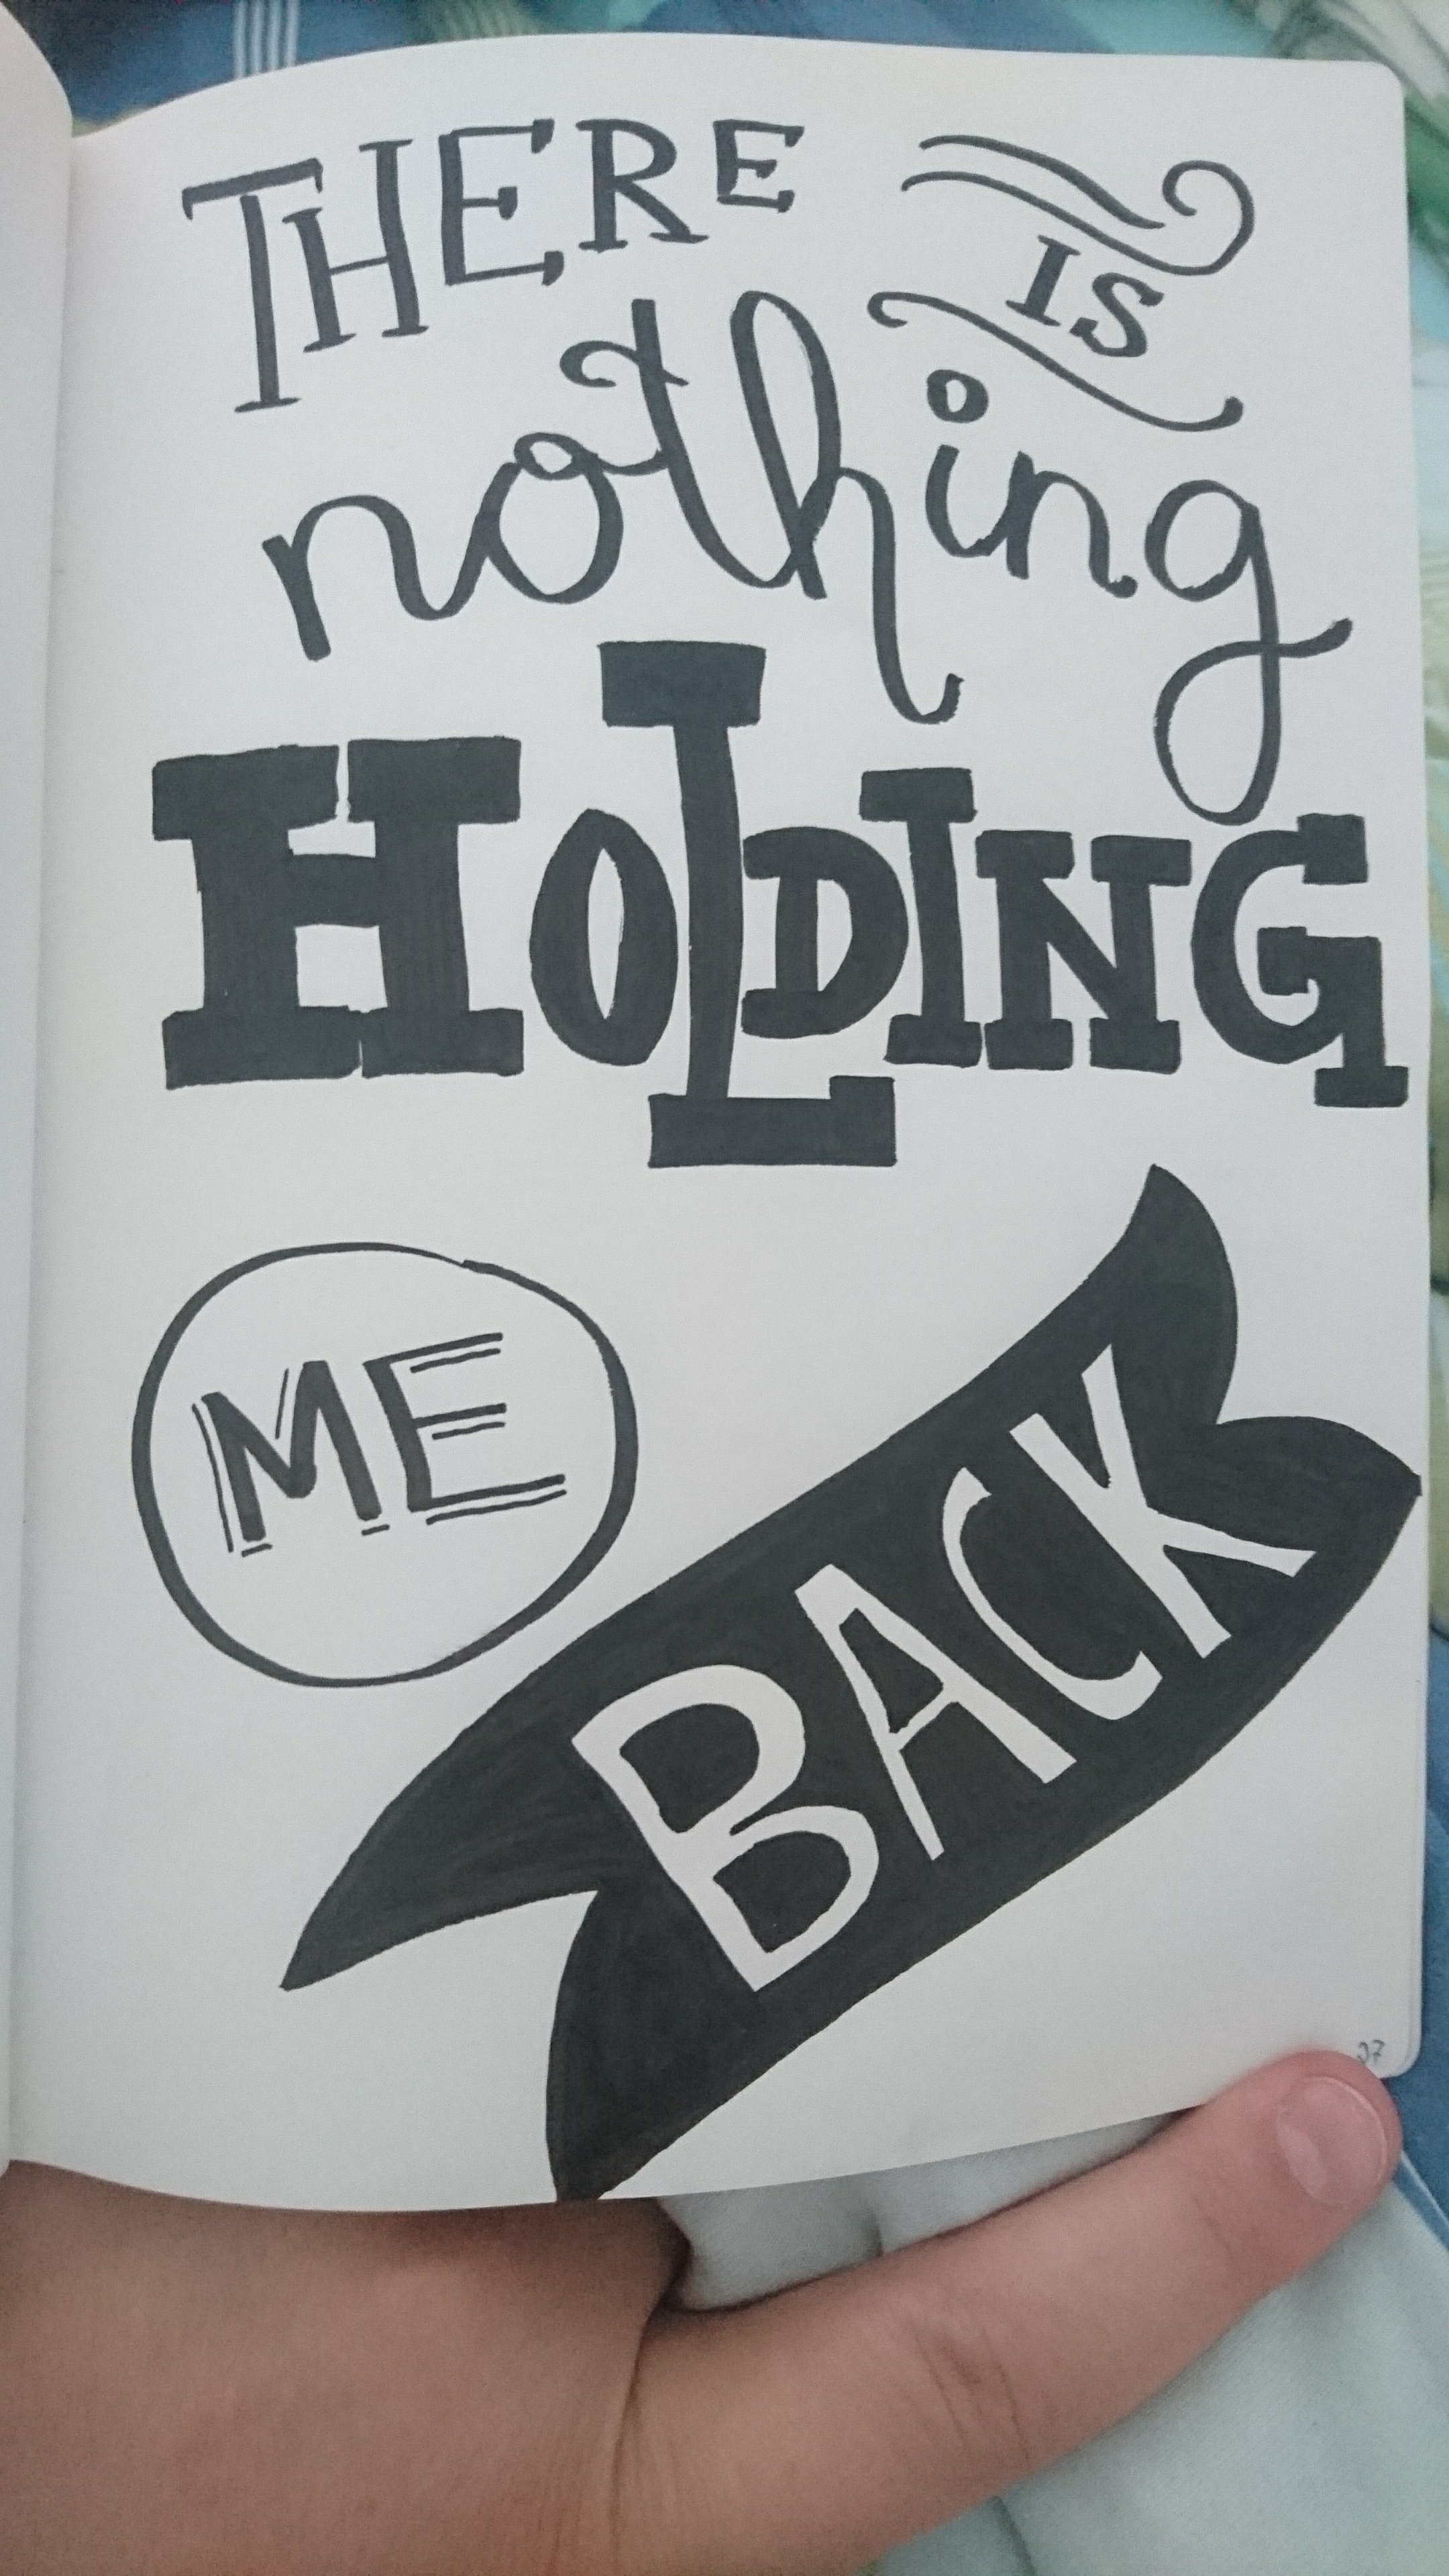 THERE
IS
nothing
HOLDING
ME
BACK
27